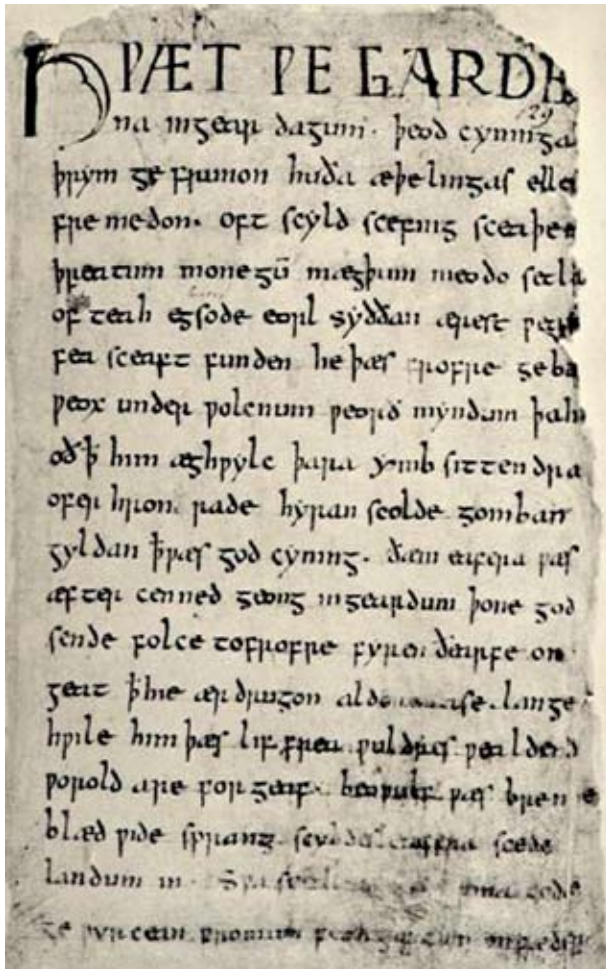 HǷÆT ǷE GARDE
129
na ingear dagum. þeod cyninga
þrym ge frunon huða æþelingas elle
fre medon. oft scyld scefing sceaþe
þreatum monegū mægþum meodo setla
of teah egsode eorl syððan ærest ƿear
fea sceaft funden he þæs frofre geba
ƿeox under ƿolcnum ƿeorð myndum þah
oð ꝥ him æghƿylc þara ymb sittendra
ofer hron rade hyran scolde gomban
gyldan ꝥ ƿæs god cyning. ðæm eafera ƿæs
æfter cenned geong ingeardum þone god
sende folce tofrofre fyren ðearfe on
geat ꝥ hie ær drugon aldor ase. lange
hƿile him þæs lif frea ƿuldres ƿealdend
ƿorold are for geaf. beoƿulf ƿæs breme
blæd ƿide sprang scyldes eafera scede
landum in. Sƿa guma gode
ge ƿyrcean fromum feoh giftum